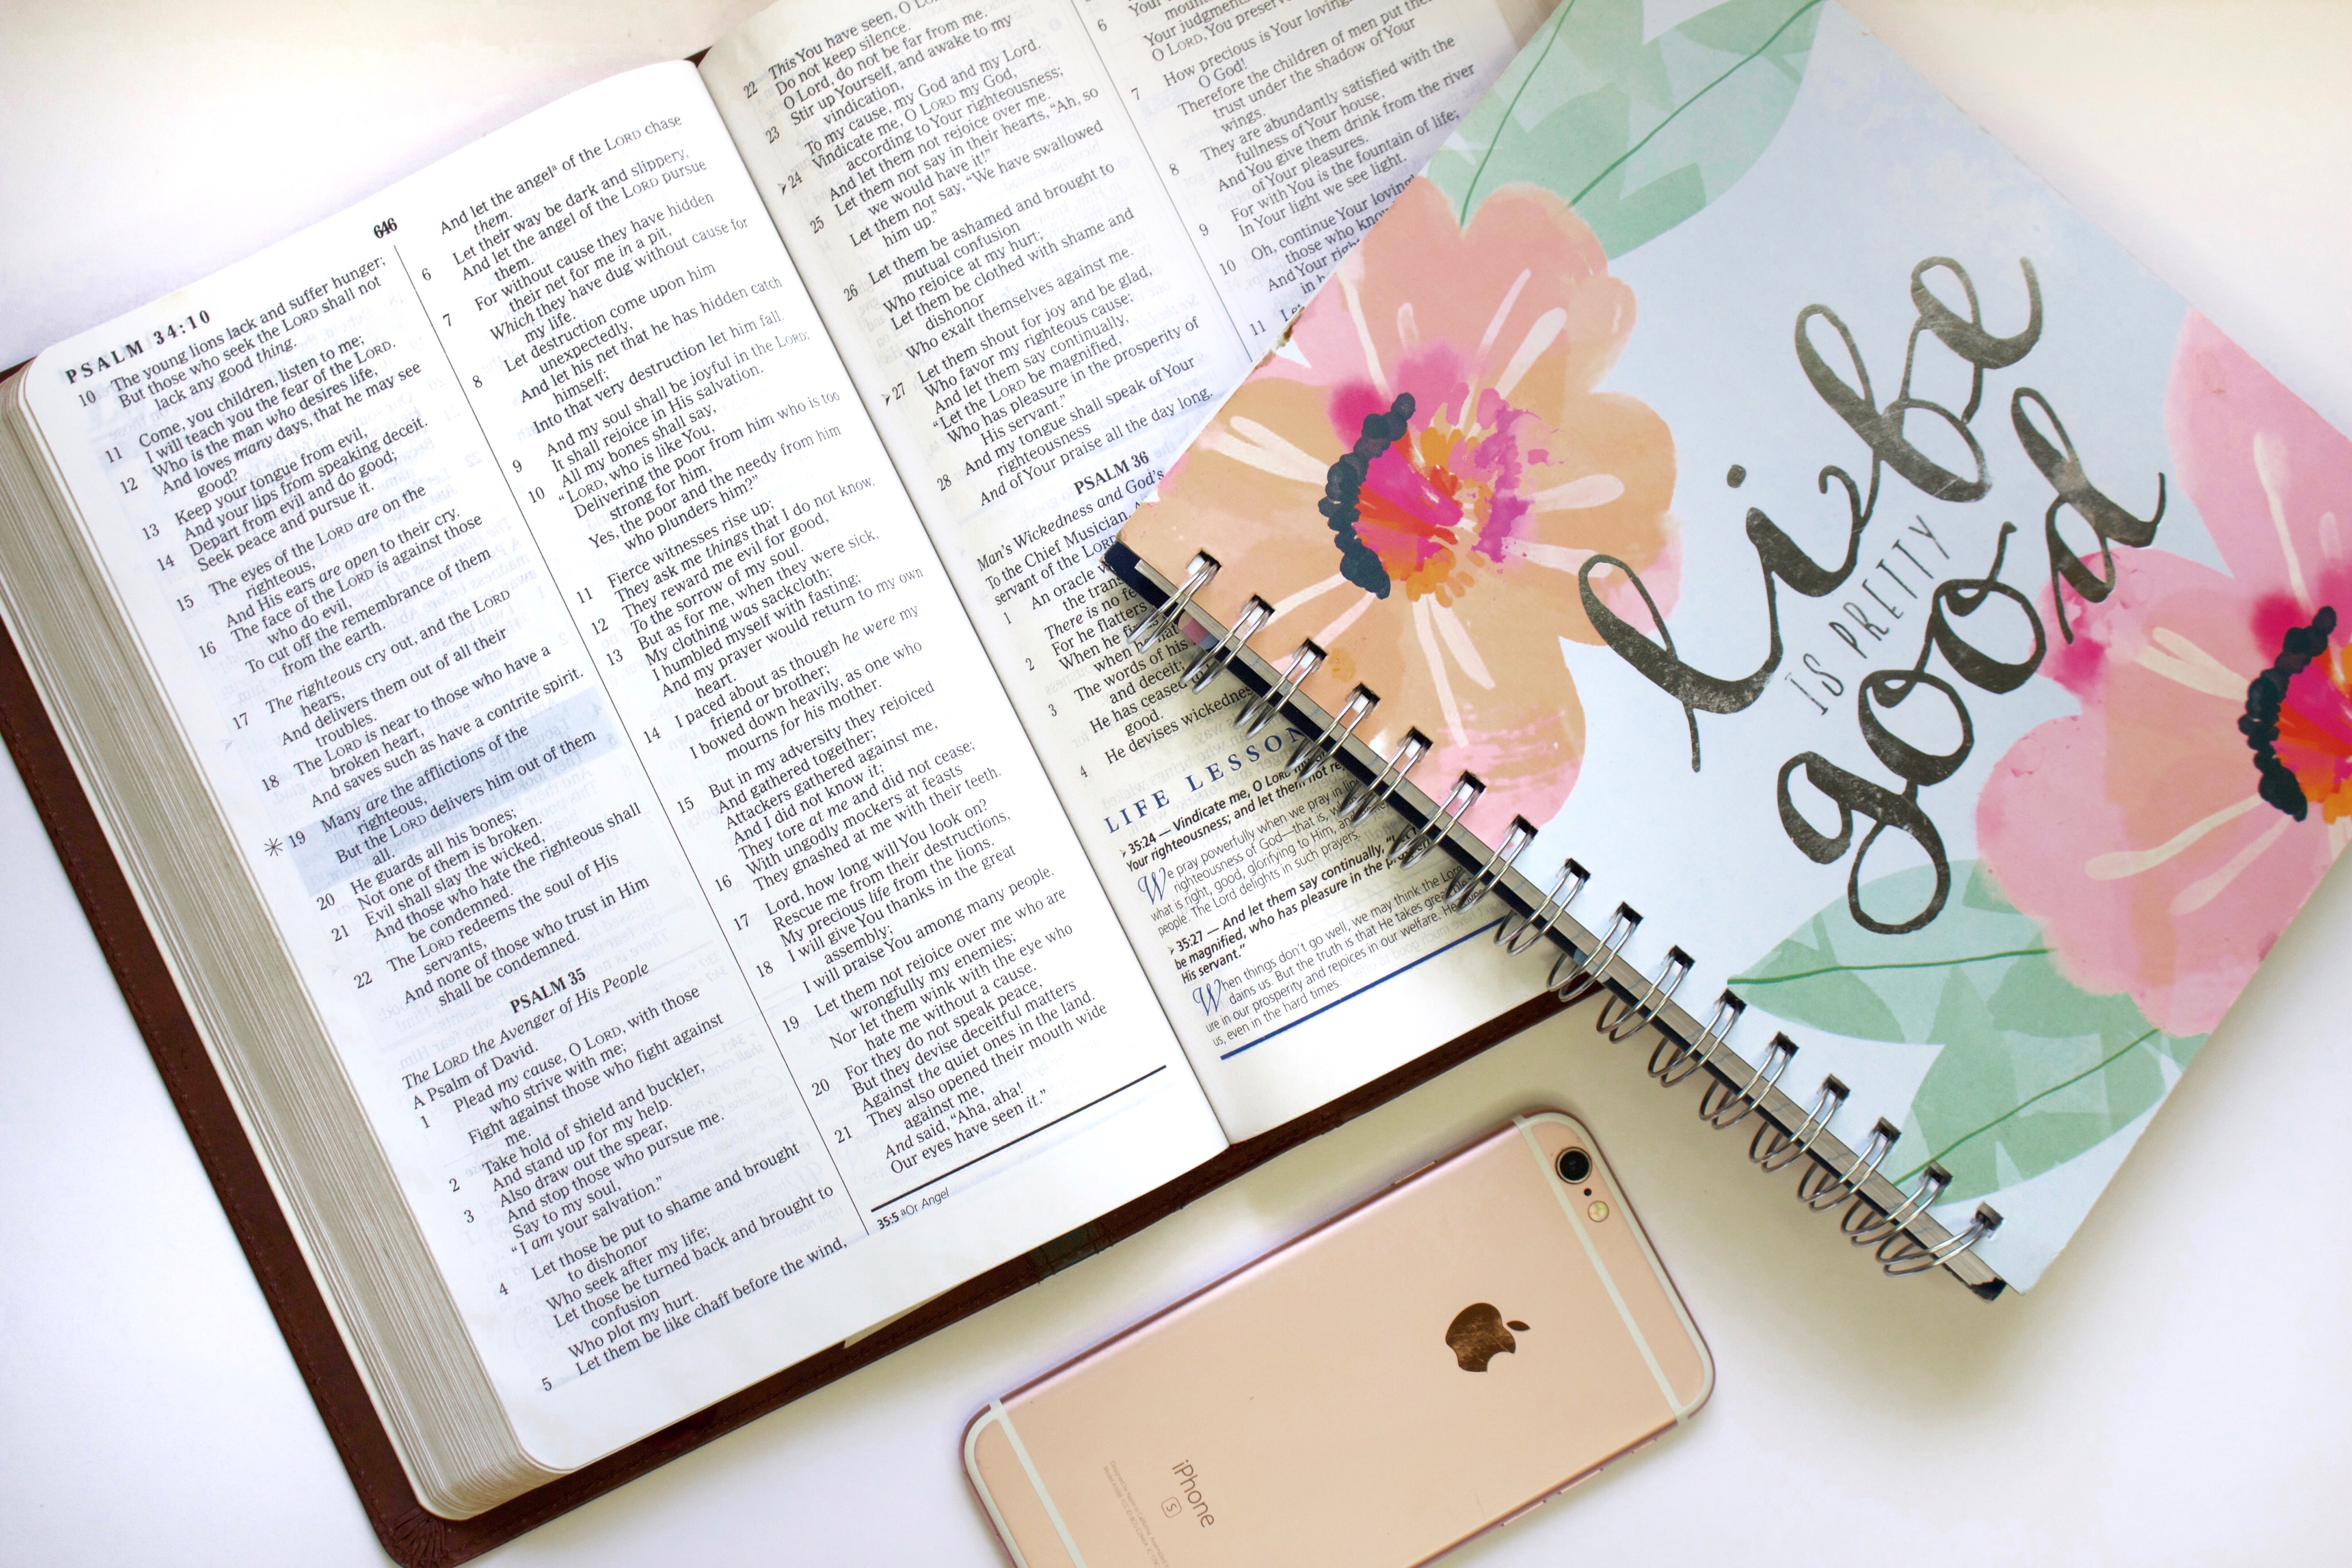 PSALM 34:10
646
10 The young lions lack and suffer hunger;
But those who seek the LORD shall not
lack any good thing.
11 Come, you children, listen to me;
I will teach you the fear of the LORD.
12 Who is the man who desires life,
And loves many days, that he may see
good?
13 Keep your tongue from evil,
And your lips from speaking deceit.
14 Depart from evil and do good;
Seek peace and pursue it.
15 The eyes of the LORD are on the
righteous,
And His ears are open to their cry.
16 The face of the LORD is against those
who do evil,
To cut off the remembrance of them
from the earth.
17 The righteous cry out, and the LORD
hears,
And delivers them out of all their
troubles.
18 The LORD is near to those who have a
broken heart,
And saves such as have a contrite spirit.
19 Many are the afflictions of the
righteous,
But the LORD delivers him out of them
all.
20 He guards all his bones;
Not one of them is broken.
21 Evil shall slay the wicked,
And those who hate the righteous shall
be condemned.
22 The LORD redeems the soul of His
servants,
And none of those who trust in Him
shall be condemned.
PSALM 35
The LORD the Avenger of His People
A Psalm of David.
1 Plead my cause, O LORD, with those
who strive with me;
Fight against those who fight against
me.
2 Take hold of shield and buckler,
And stand up for my help.
3 Also draw out the spear,
And stop those who pursue me.
Say to my soul,
"I am your salvation."
4 Let those be put to shame and brought
to dishonor
Who seek after my life;
Let those be turned back and brought to
confusion
Who plot my hurt.
5 Let them be like chaff before the wind,
And let the angelª of the LORD chase
them.
6 Let their way be dark and slippery,
And let the angel of the LORD pursue
them.
7 For without cause they have hidden
their net for me in a pit,
Which they have dug without cause for
my life.
8 Let destruction come upon him
unexpectedly,
And let his net that he has hidden catch
himself;
Into that very destruction let him fall.
9 And my soul shall be joyful in the LORD;
It shall rejoice in His salvation.
10 All my bones shall say,
"LORD, who is like You,
Delivering the poor from him who is too
strong for him,
Yes, the poor and the needy from him
who plunders him?"
11 Fierce witnesses rise up;
They ask me things that I do not know.
12 They reward me evil for good,
To the sorrow of my soul.
13 But as for me, when they were sick,
My clothing was sackcloth;
I humbled myself with fasting;
And my prayer would return to my own
heart.
14 I paced about as though he were my
friend or brother;
I bowed down heavily, as one who
mourns for his mother.
15 But in my adversity they rejoiced
And gathered together;
Attackers gathered against me,
And I did not know it;
They tore at me and did not cease;
16 With ungodly mockers at feasts
They gnashed at me with their teeth.
17 Lord, how long will You look on?
Rescue me from their destructions,
My precious life from the lions.
18 I will give You thanks in the great
assembly;
I will praise You among many people.
19 Let them not rejoice over me who are
wrongfully my enemies;
Nor let them wink with the eye who
hate me without a cause.
20 For they do not speak peace,
But they devise deceitful matters
Against the quiet ones in the land.
21 They also opened their mouth wide
against me,
And said, "Aha, aha!
Our eyes have seen it."
35:5 ªOr Angel
22 This You have seen, O L
Do not keep silence.
O Lord, do not be far from me.
23 Stir up Yourself, and awake to my
vindication,
To my cause, my God and my Lord.
24 Vindicate me, O LORD my God,
according to Your righteousness;
And let them not rejoice over me.
25 Let them not say in their hearts, "Ah, so
we would have it!"
Let them not say, "We have swallowed
him up."
26 Let them be ashamed and brought to
mutual confusion
Who rejoice at my hurt;
Let them be clothed with shame and
dishonor
Who exalt themselves against me.
27 Let them shout for joy and be glad,
Who favor my righteous cause;
And let them say continually,
"Let the LORD be magnified,
Who has pleasure in the prosperity of
His servant."
28 And my tongue shall speak of Your
righteousness
And of Your praise all the day long.
PSALM 36
Man's Wickedness and God's
To the Chief Musician. A
servant of the LORD
1 An oracle
the trans
There is no fe
2 For he flatters
When he fin
when he hat
3 The words of his
and deceit;
He has ceased to
good.
4 He devises wickedness
6
Your judgments
O LORD, You preserve
7 How precious is Your loving
O God!
Therefore the children of men put the
trust under the shadow of Your
wings.
8 They are abundantly satisfied with the
fullness of Your house,
And You give them drink from the river
of Your pleasures.
9 For with You is the fountain of life;
In Your light we see light.
10 Oh, continue Your loving
those who know
And Your righ
in h
11 Let
LIFE LESSON
35:24 — Vindicate me, O LORD my
Your righteousness; and let them not re
We pray powerfully when we pray in line
righteousness of God—that is, w
what is right, good, glorifying to Him, and
people. The Lord delights in such prayers.
35:27 — And let them say continually, "Let
be magnified, who has pleasure in the pr
His servant."
When things don't go well, we may think the Lord
dains us. But the truth is that He takes great
ure in our prosperity and rejoices in our welfare. He
us, even in the hard times.
life
IS PRETTY
good
iPhone
S